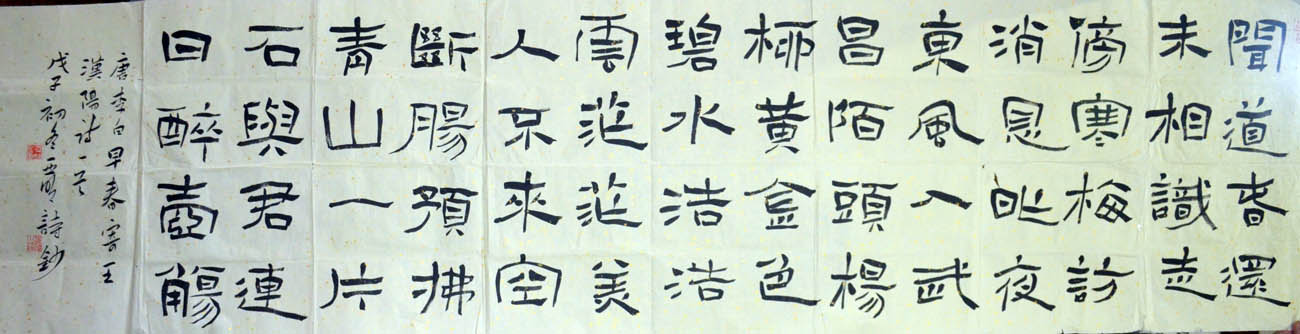 聞道春還
未相識走
傍寒梅訪
消息昨夜
東風入武
昌陌頭楊
柳黃金色
碧水浩浩
雲茫茫美
人不來空
斷腸預拂
青山一片
石與君連
日醉壺觴
唐李白早春寄王
漢陽詩一首
戊子初冬詩鈔